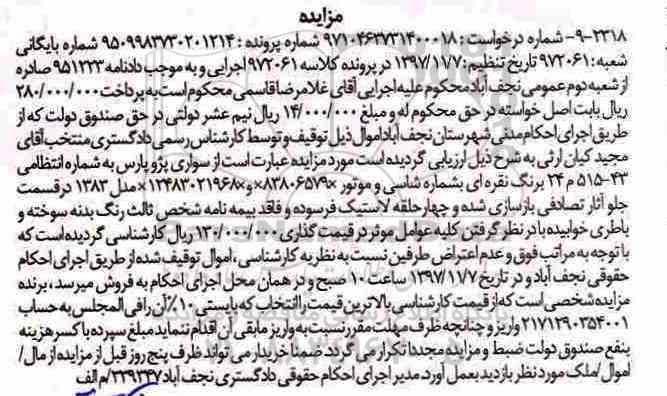 مزایده
۹-۳۳۱۸- شماره درخواست : ۹۷۱۰۴۶۳۷۳۱۴۰۰۰۱۸ شماره پرونده : ۹۵۰۹۹۸۳۷۳۰۲۰۱۲۱۴ شماره بایگانی
شعبه : ۹۷۲۰۶۱ تاریخ تنظیم : ۱۳۹۷/۱۱/۷ در پرونده کلاسه ۹۷۲۰۶۱ اجرایی و به موجب دادنامه ۹۵۱۲۳۳ صادره
از شعبه دوم عمومی نجف آباد محکوم علیه اجرایی آقای غلامرضا قاسمی محکوم است به پرداخت ۲۸۰/۰۰۰/۰۰۰
ریال بابت اصل خواسته در حق محکوم له و مبلغ ۱۴/۰۰۰/۰۰۰ ریال نیم عشر دولتی در حق صندوق دولت که از
طریق اجرای احکام مدنی شهرستان نجف آباد اموال ذیل توقیف و توسط کارشناس رسمی دادگستری منتخب آقای
مجید کیان ارثی به شرح ذیل ارزیابی گردیده است مورد مزایده عبارت است از سواری پژو پارس به شماره انتظامی
۴۳-۵۱۵ م ۲۴ برنگ نقره ای بشماره شاسی و موتور ×۸۳۸۰۶۵۷۹× و×۱۲۴۸۳۰۲۱۹۶۸× مدل ۱۳۸۳ در قسمت
جلو آثار تصادفی بازسازی شده و چهار حلقه لاستیک فرسوده و فاقد بیمه نامه شخص ثالث رنگ بدنه سوخته و
باطری خوابیده با در نظر گرفتن کلیه عوامل موثر در قیمت گذاری ۱۳۰/۰۰۰/۰۰۰ ریال کارشناسی گردیده است که
با توجه به مراتب فوق و عدم اعتراض طرفین نسبت به نظریه کارشناسی ، اموال توقیف شده از طریق اجرای احکام
حقوقی نجف آباد و در تاریخ ۱۳۹۷/۱۱/۷ ساعت ۱۰ صبح و در همان محل اجرای احکام به فروش میرسد ، برنده
مزایده شخصی است که از قیمت کارشناسی بالاترین قیمت را انتخاب که بایستی ۱۰٪ آن را فی المجلس به حساب
۲۱۷۱۲۹۰۳۵۴۰۰۱ واریز و چنانچه ظرف مهلت مقرر نسبت به واریز مابقی آن اقدام ننماید مبلغ سپرده با کسر هزینه
بنفع صندوق دولت ضبط و مزایده مجددا تکرار می گردد. ضمنا خریدار می تواند ظرف پنج روز قبل از مزایده از مال/
اموال/ملک مورد نظر بازدید بعمل آورد. مدیر اجرای احکام حقوقی دادگستری نجف آباد ۳۳۹۳۴۷/م الف